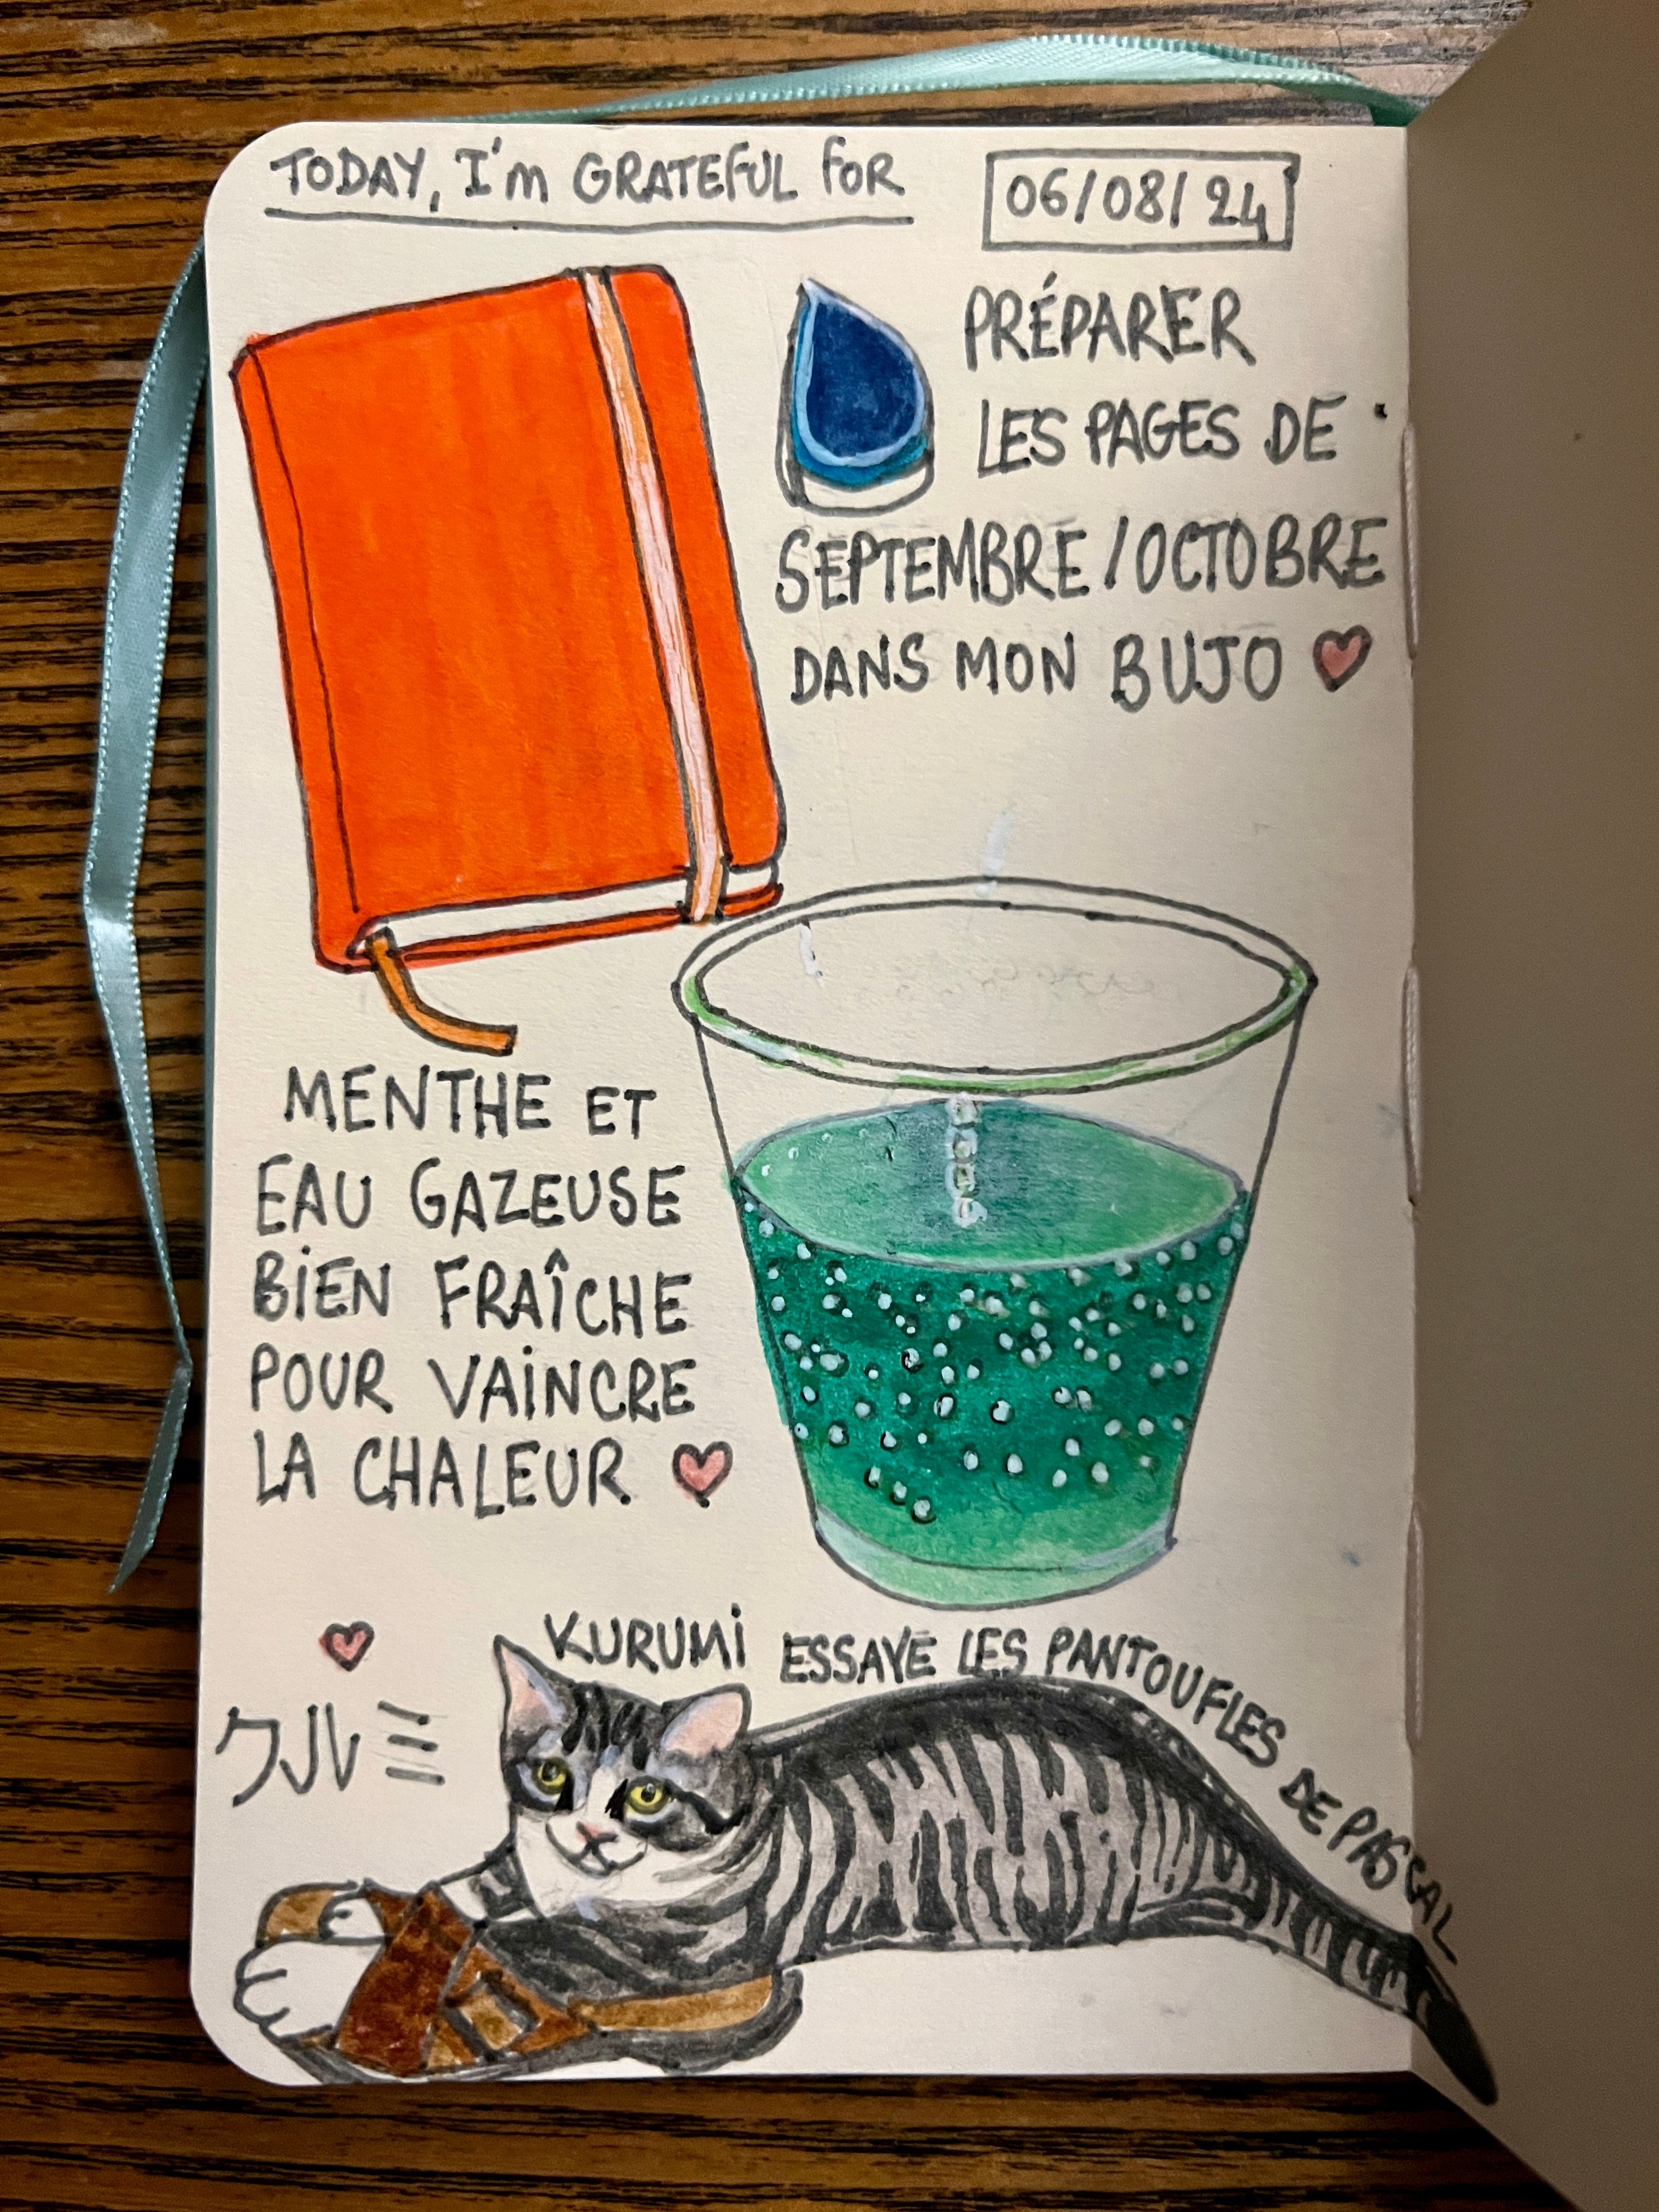 TODAY, I'm GRATEFUL FOR
06/08/24
PRÉPARER
LES PAGES DE
SEPTEMBRE / OCTOBRE
DANS MON BUJO
MENTHE ET
EAU GAZEUSE
BIEN FRAÎCHE
POUR VAINCRE
LA CHALEUR
KURUMI ESSAYE LES PANTOUFLES DE PASCAL
クルミ